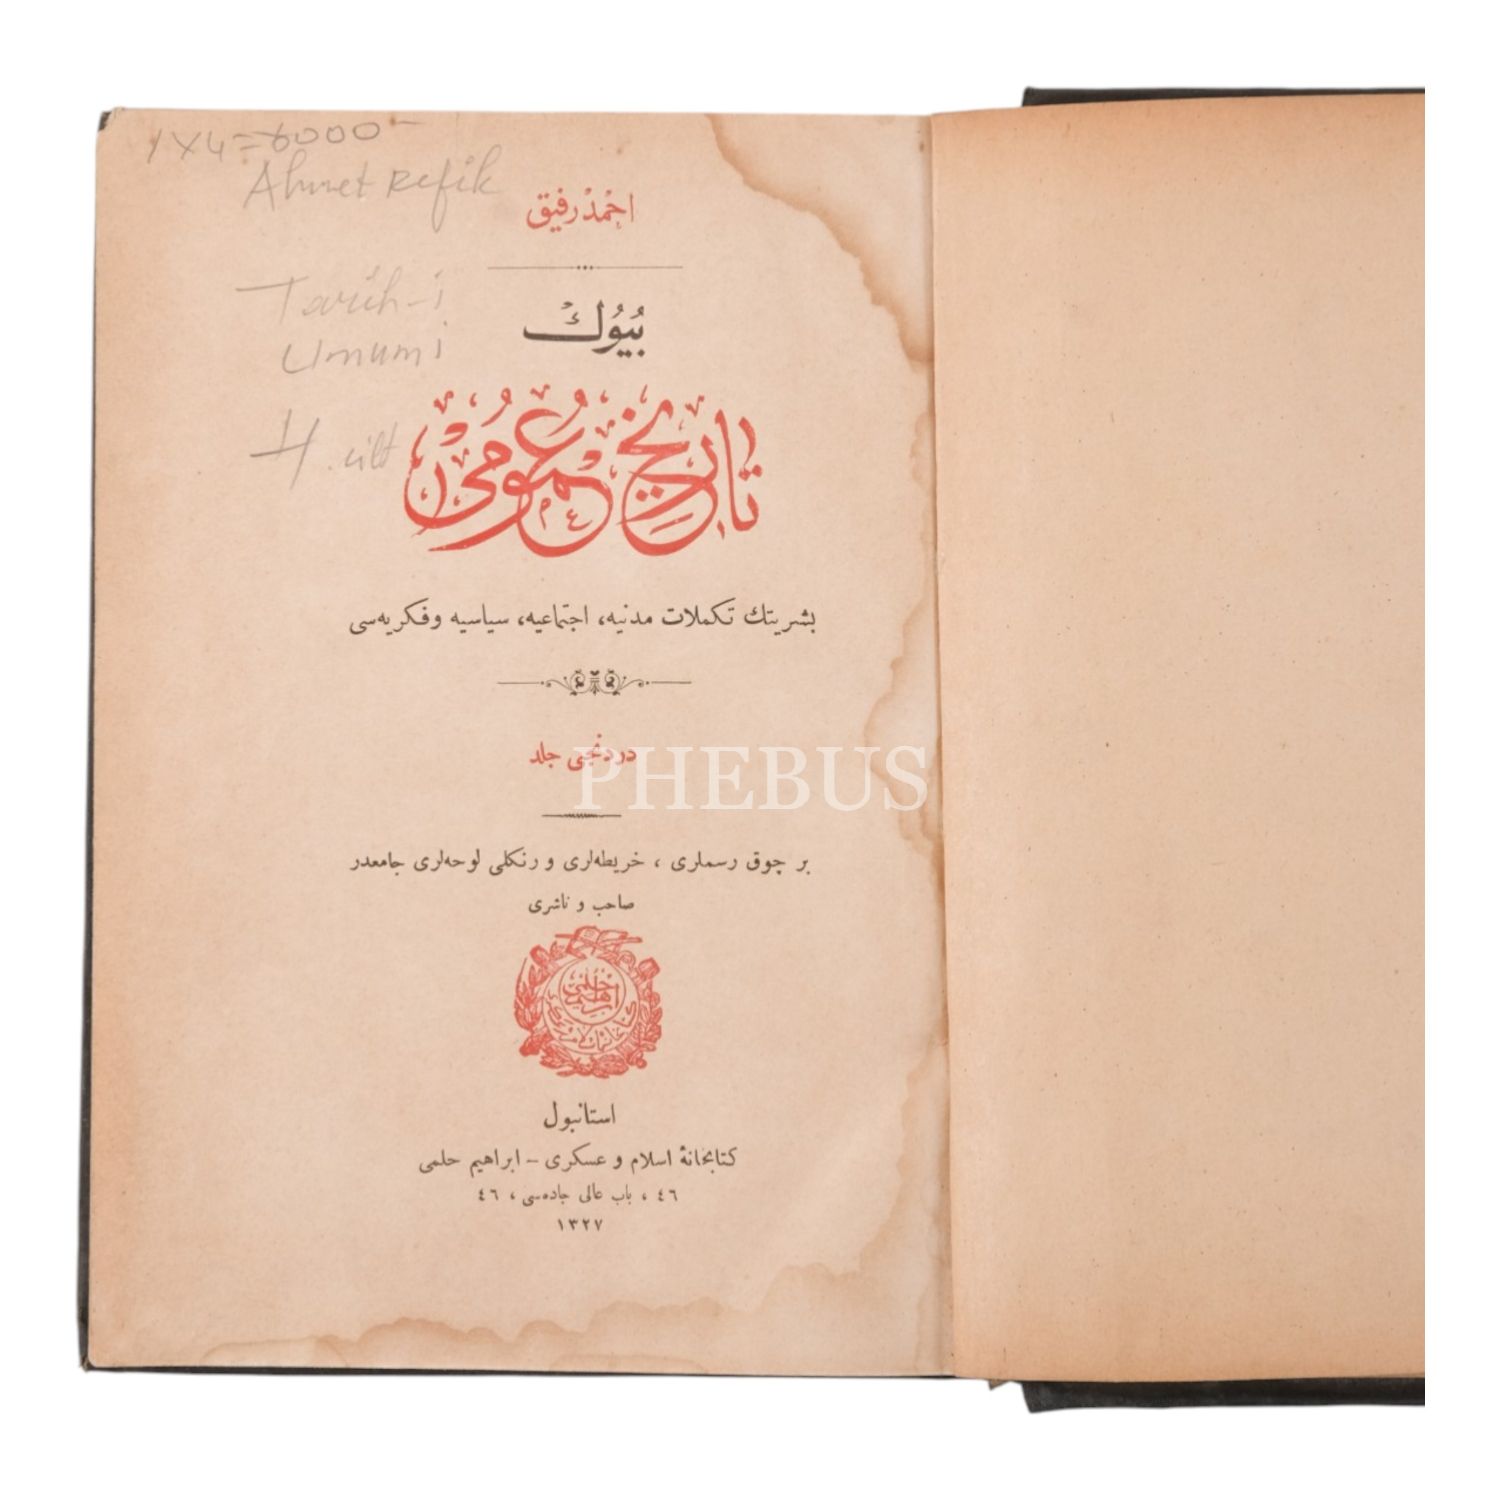 1x4=6000-
Ahmet Refik
احمد رفيق
Tarih-i
Umumi
بيوك
4. cilt
تاريخ عمومى
بشريتك تكملات مدنيه، اجتماعيه، سياسيه وفكريه‌سى
دردنجى جلد
PHEBUS
بر چوق رسملرى ، خريطه‌لرى و رنكلى لوحه‌لرى جامعدر
صاحب و ناشرى
ابراهيم حلمى
استانبول
كتابخانۀ اسلام و عسكرى – ابراهيم حلمى
٤٦ ، باب عالى جاده‌سى ، ٤٦
١٣٢٧